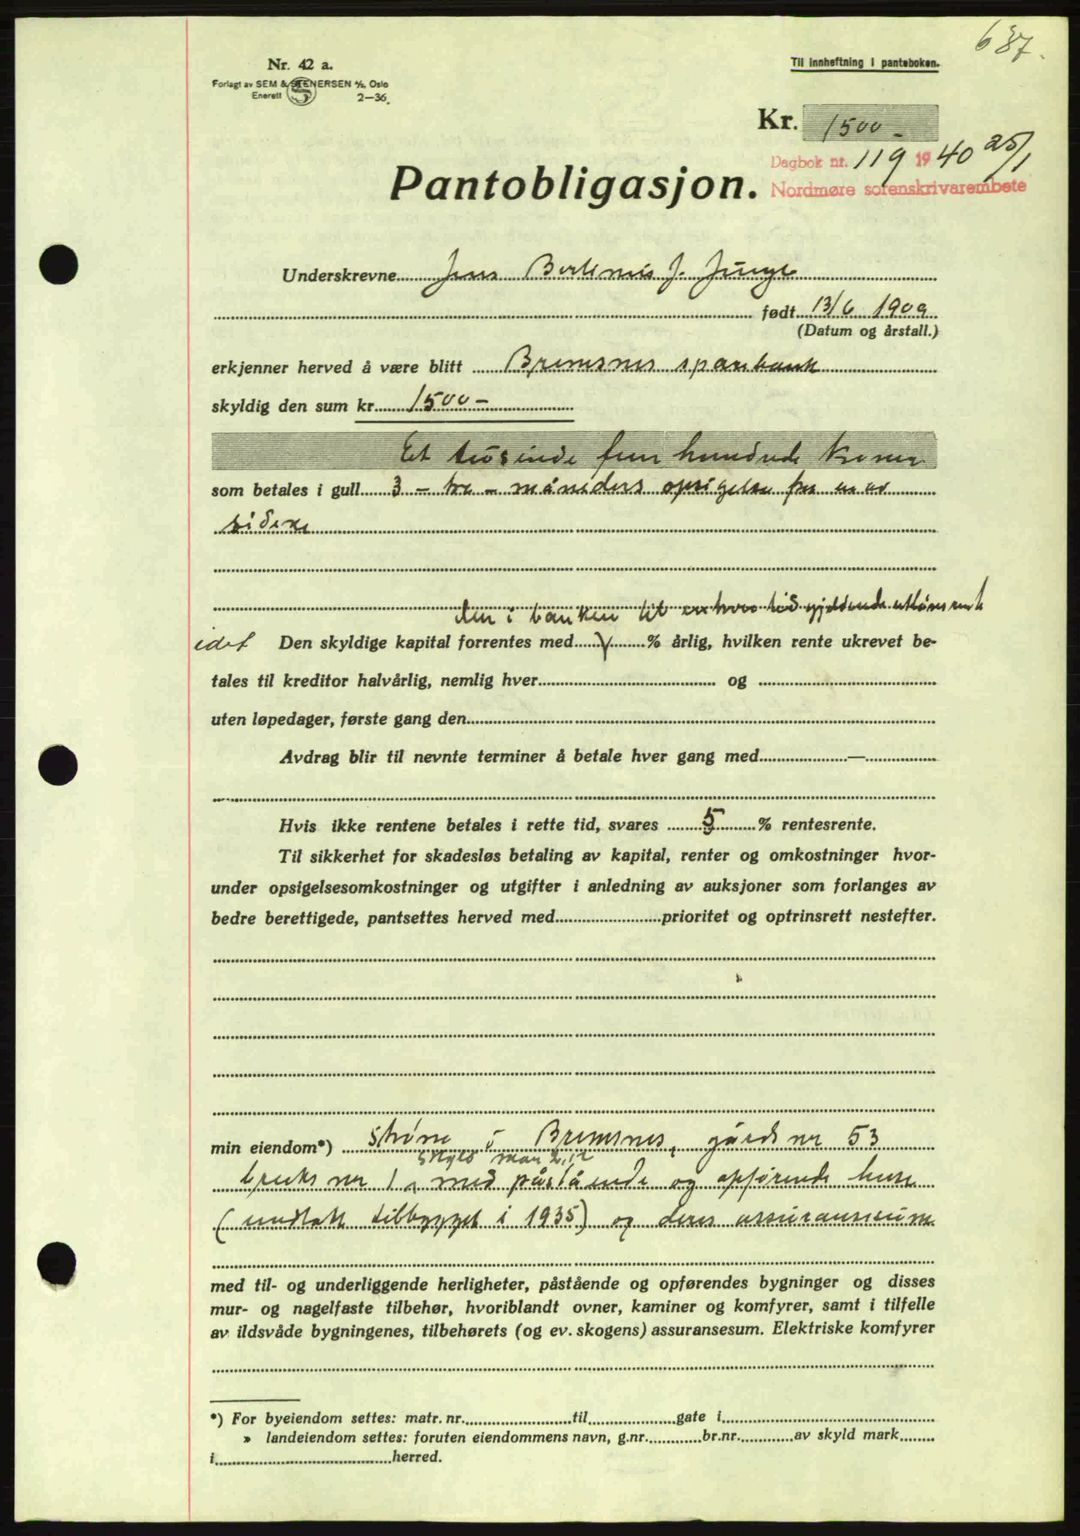 687.
Nr. 42 a.
Forlagt av SEM & STENERSEN A/S, Oslo
Enerett 2-36.
Til innheftning i panteboken.
Kr. 1500 -
Dagbok nr. 119 1940 25/1
Nordmøre sorenskrivarembete
Pantobligasjon.
Underskrevne Jens J.
født 13/6 1909
(Datum og årstall.)
erkjenner herved å være blitt Bremsnes sparebank
skyldig den sum kr. 1500 -
Et tusinde fem hundrede kroner
som betales i gull 3 - tre - måneders opsigelse fra en av
sidene
den i banken til enhver tid gjeldende utlånsrente
idet Den skyldige kapital forrentes med % årlig, hvilken rente ukrevet be-
tales til kreditor halvårlig, nemlig hver og
uten løpedager, første gang den
Avdrag blir til nevnte terminer å betale hver gang med —
Hvis ikke rentene betales i rette tid, svares 5 % rentesrente.
Til sikkerhet for skadesløs betaling av kapital, renter og omkostninger hvor-
under opsigelsesomkostninger og utgifter i anledning av auksjoner som forlanges av
bedre berettigede, pantsettes herved med prioritet og optrinsrett nestefter.
min eiendom*) i Bremsnes, gårds nr 53
skyld mark 2,12
bruks nr 1, med påstående og opførende huse
(undtatt tilbygget i 1935) og deres assuransesum
med til- og underliggende herligheter, påstående og opførendes bygninger og disses
mur- og nagelfaste tilbehør, hvoriblandt ovner, kaminer og komfyrer, samt i tilfelle
av ildsvåde bygningenes, tilbehørets (og ev. skogens) assuransesum. Elektriske komfyrer
*) For byeiendom settes: matr. nr. til gate i
» landeiendom settes: foruten eiendommens navn, g.nr. br.nr. av skyld mark
i herred.